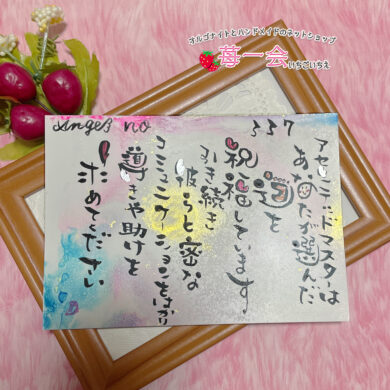 オルゴナイトとハンドメイドのネットショップ
苺一会
いちごいちえ
Angel no 337
アセンデッドマスターは
あなたが選んだ
道を
祝福しています
引き続き
彼らと密な
コミュニケーションをはかり
導きや助けを
求めてください